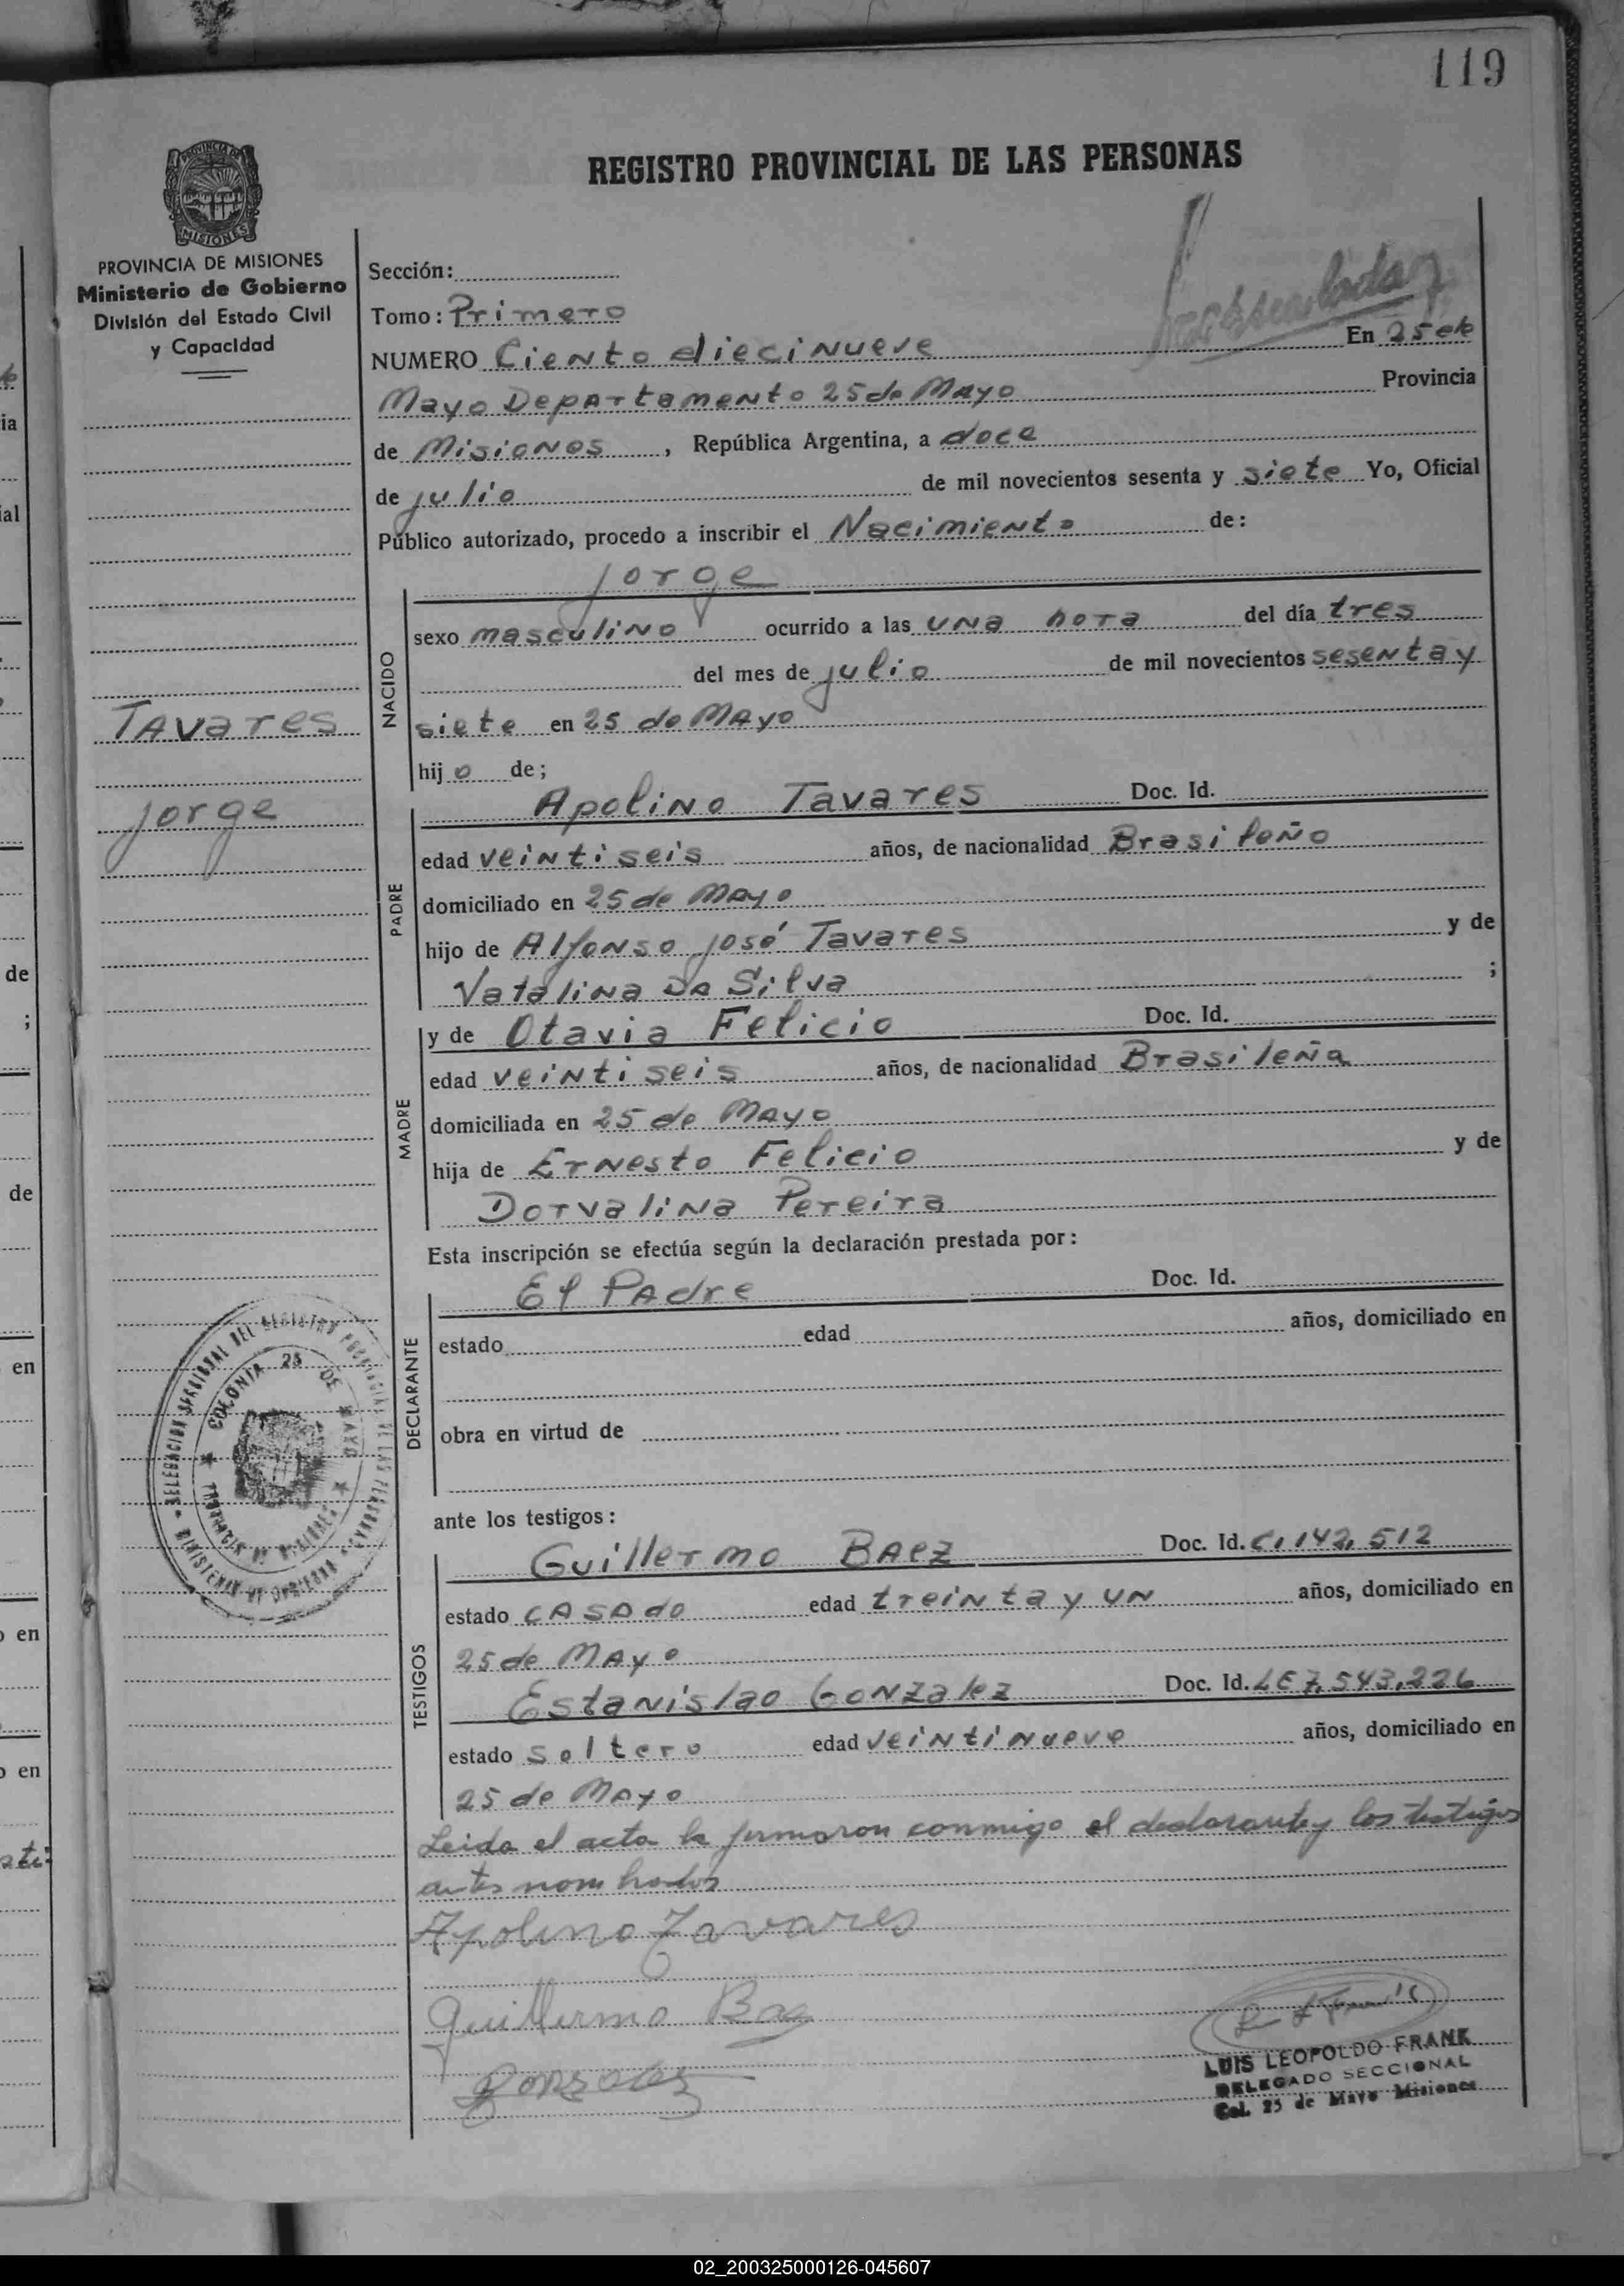 119
REGISTRO PROVINCIAL DE LAS PERSONAS
PROVINCIA DE
MISIONES
PROVINCIA DE MISIONES
Ministerio de Gobierno
División del Estado Civil
y Capacidad
Tavares
Jorge
Sección:
Tomo: Primero
NUMERO Ciento diecinueve En 25 de
Mayo Departamento 25 de Mayo Provincia
de Misiones, República Argentina, a doce
de julio de mil novecientos sesenta y siete Yo, Oficial
Público autorizado, procedo a inscribir el Nacimiento de:
NACIDO
Jorge
sexo masculino ocurrido a las una hora del día tres
del mes de julio de mil novecientos sesenta y
siete en 25 de Mayo
hijo de;
PADRE
Apolino Tavares Doc. Id.
edad veintiseis años, de nacionalidad Brasileño
domiciliado en 25 de Mayo
hijo de Alfonso José Tavares y de
Vatalina Da Silva ;
MADRE
y de Otavia Felicio Doc. Id.
edad veintiseis años, de nacionalidad Brasileña
domiciliada en 25 de Mayo
hija de Ernesto Felicio y de
Dorvalina Pereira
Esta inscripción se efectúa según la declaración prestada por:
DECLARANTE
El Padre Doc. Id.
estado edad años, domiciliado en
obra en virtud de
ante los testigos:
TESTIGOS
Guillermo Baez Doc. Id. C.142.512
estado casado edad treinta y un años, domiciliado en
25 de Mayo
Estanislao Gonzalez Doc. Id. LE 7.543.226
estado soltero edad veintinueve años, domiciliado en
25 de Mayo
Leida el acta la firmaron conmigo el declarante y los testigos
antes nombrados
Apolino Tavares
Guillermo Baez
Gonzalez
LUIS LEOPOLDO FRANK
DELEGADO SECCIONAL
Col. 25 de Mayo Misiones
DELEGACION SECCIONAL DEL REGISTRO PROVINCIAL DE LAS PERSONAS
MINISTERIO DE GOBIERNO
COLONIA 25 DE MAYO
PROVINCIA DE MISIONES
02_200325000126-045607